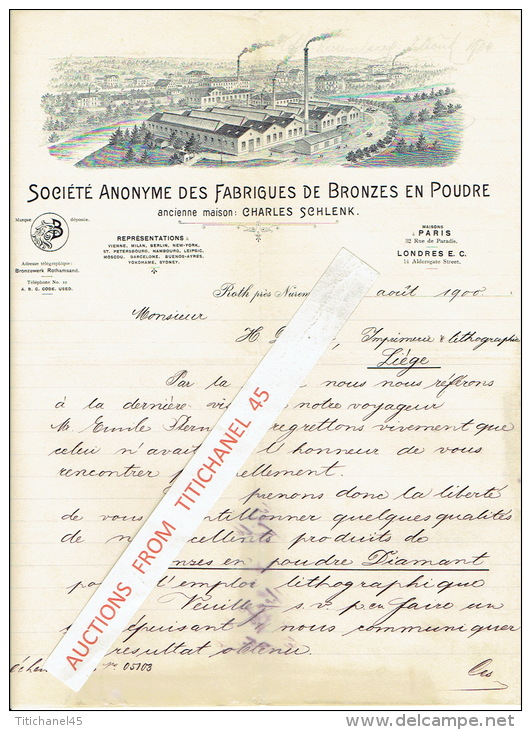 SOCIÉTÉ ANONYME DES FABRIQUES DE BRONZES EN POUDRE
ancienne maison: CHARLES SCHLENK.
Marque déposée.
Adresse télégraphique:
Bronzewerk Rothamsand.
Téléphone No. 12
A. B. C. CODE USED.
REPRÉSENTATIONS à
VIENNE, MILAN, BERLIN, NEW-YORK,
ST. PETERSBOURG, HAMBOURG, LEIPSIC,
MOSCOU, BARCELONE, BUENOS-AYRES,
YOKOHAME, SYDNEY.
MAISONS
à PARIS
32 Rue de Paradis.
LONDRES E. C.
14 Aldersgate Street.
Roth près Nürem août 1900.
Monsieur
H Imprimerie & lithographie
Liége
Par la nous nous référons
à la dernière notre voyageur
M. Emile Stern regrettons vivement que
celui n'avait l'honneur de vous
rencontrer
prenons la liberté
de vous quelques qualités
de produits de
en poudre Diamant
l'emploi lithographique
Veuillez s. v. p. en faire un
nous communiquer
resultat obtenu.
05103
AUCTIONS FROM TITICHANEL 45
Titichanel45
www.delcampe.net